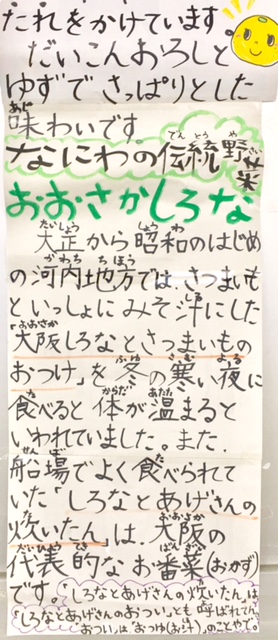 たれをかけています。
だいこんおろしと
ゆずでさっぱりとした
味わいです。
なにわの伝統野菜
おおさかしろな
大正から昭和のはじめ
の河内地方ではさつまいも
といっしょにみそ汁にした
「大阪しろなとさつまいもの
おつけ」を冬の寒い夜に
食べると体が温まると
いわれていました。また、
船場でよく食べられて
いた「しろなとあげさんの
炊いたん」は、大阪の
代表的なお番菜(おかず)
です。
「しろなとあげさんの炊いたん」は、
「しろなとあげさんのおつい」とも呼ばれてん。
おつい」は"おつゆ(お汁)"のことやで。